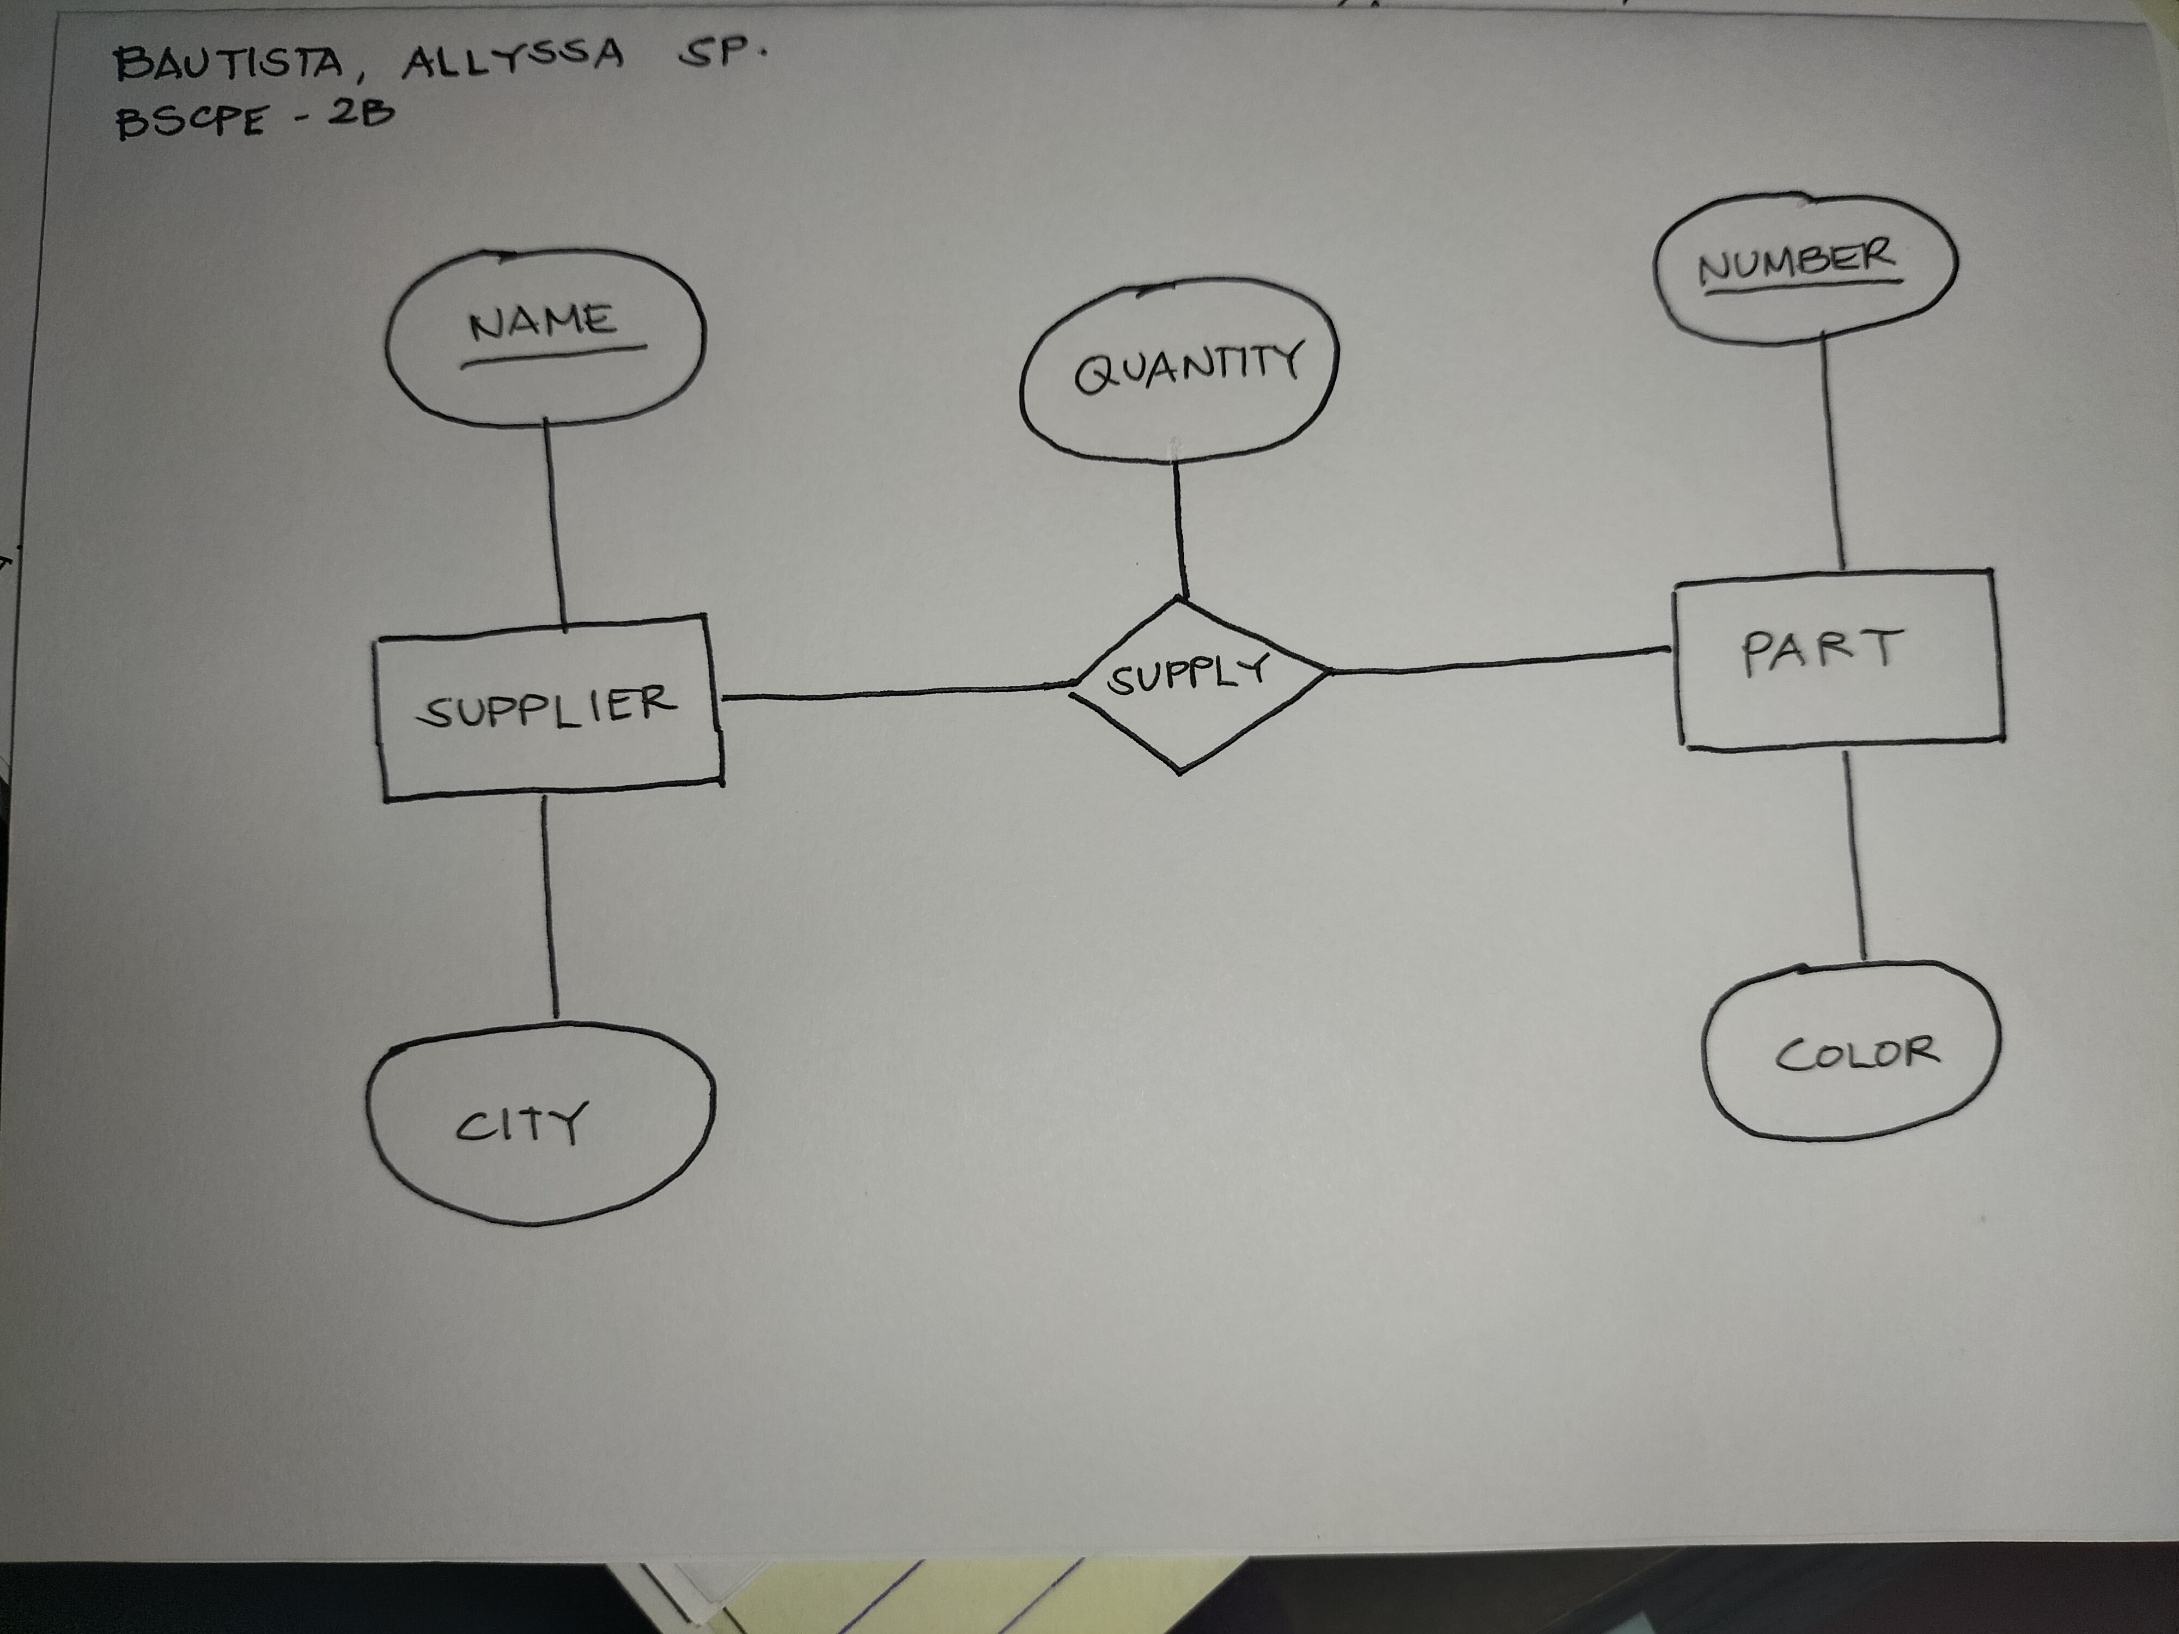 BAUTISTA, ALLYSSA SP.
BSCPE - 2B
NAME
QUANTITY
NUMBER
SUPPLIER
SUPPLY
PART
CITY
COLOR